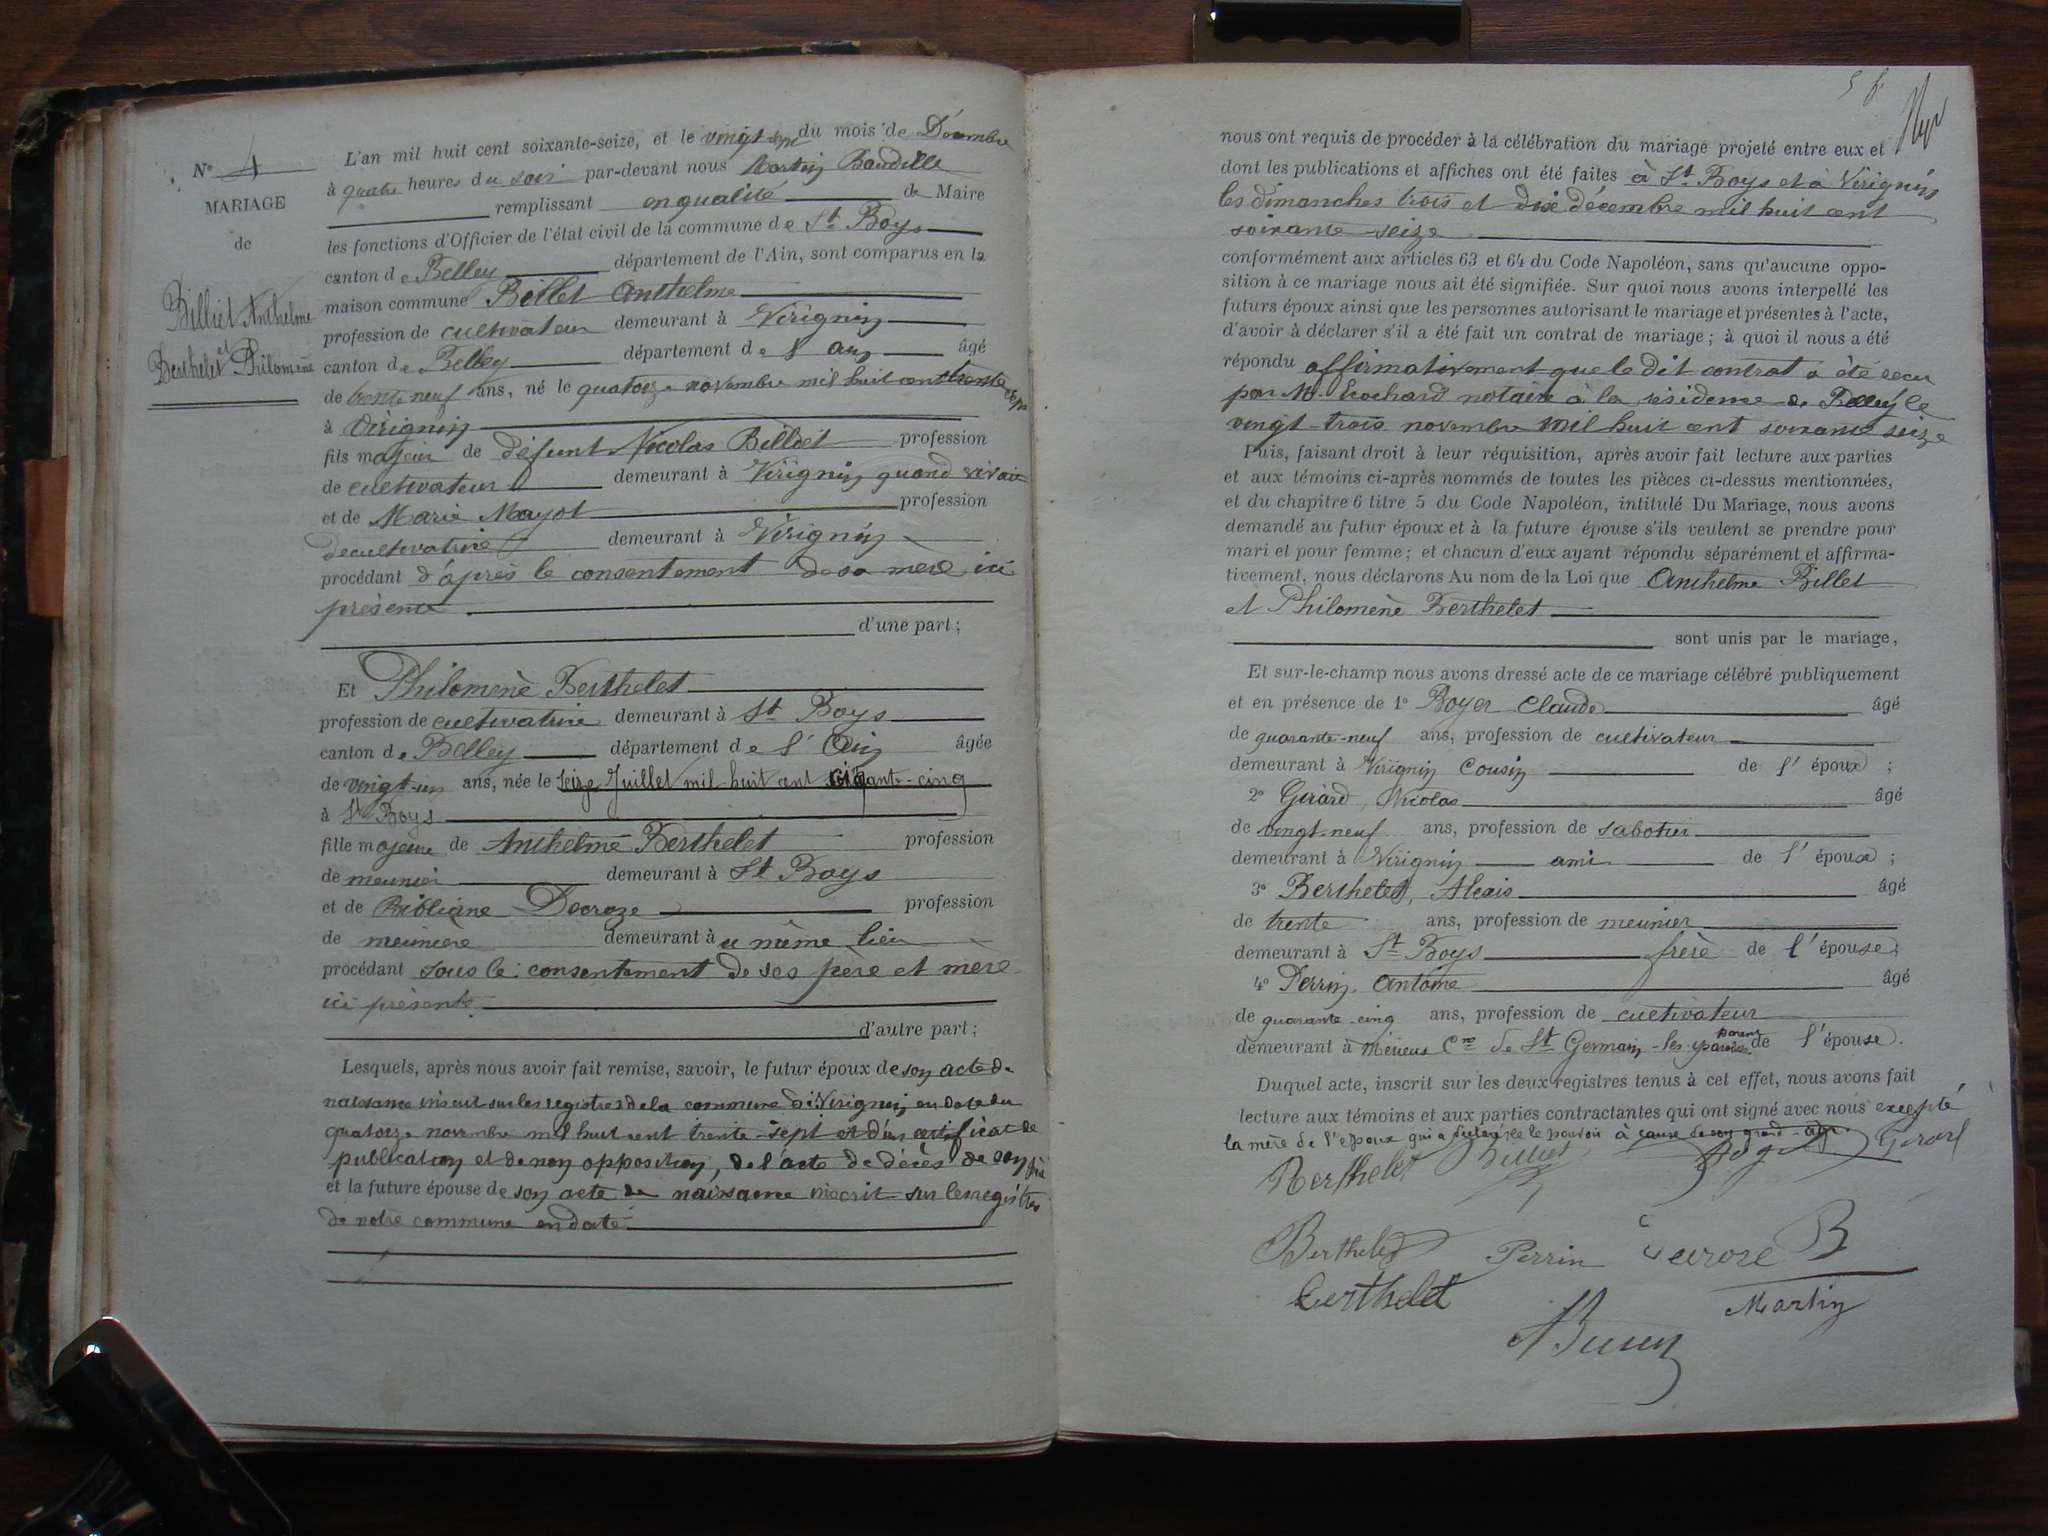 N° 4
MARIAGE
de
Billiet Anthelme
et
Berthelet Philomène
L'an mil huit cent soixante-seize, et le vingt-sept du mois de Décembre
à quatre heures du soir par-devant nous Martin Baudille
remplissant en qualité de Maire
les fonctions d'Officier de l'état civil de la commune de St Boys
canton de Belley département de l'Ain, sont comparus en la
maison commune Billet Anthelme
profession de cultivateur demeurant à Virignin
canton de Belley département de l'ain âgé
de trente neuf ans, né le quatorze novembre mil huit cent trente sept
à Virignin
fils majeur de défunt Nicolas Billiet profession
de cultivateur demeurant à Virignin quand vivait
et de Marie Mayot profession
de cultivatrice demeurant à Virignin
procédant d'après le consentement de sa mère ici
présente
d'une part ;
Et Philomène Berthelet
profession de cultivatrice demeurant à St Boys
canton de Belley département de l'Ain âgée
de vingt-un ans, née le seize Juillet mil huit cent cinquante-cinq
à St Boys
fille majeure de Anthelme Berthelet profession
de meunier demeurant à St Boys
et de Bibliane Decroze profession
de meunière demeurant à u même lieu
procédant sous le consentement de ses père et mère
ici présents
d'autre part ;
Lesquels, après nous avoir fait remise, savoir, le futur époux de son acte de
naissance inscrit sur les registres de la commune de Virignin en date du
quatorze novembre mil huit cent trente-sept et d'un certificat de
publication et de non opposition, de l'acte de décès de son père
et la future épouse de son acte de naissance inscrit sur les registres
de notre commune en date
nous ont requis de procéder à la célébration du mariage projeté entre eux et
dont les publications et affiches ont été faites à St Boys et à Virignin
les dimanches trois et dix décembre mil huit cent
soixante-seize
conformément aux articles 63 et 64 du Code Napoléon, sans qu'aucune oppo-
sition à ce mariage nous ait été signifiée. Sur quoi nous avons interpellé les
futurs époux ainsi que les personnes autorisant le mariage et présentes à l'acte,
d'avoir à déclarer s'il a été fait un contrat de mariage ; à quoi il nous a été
répondu affirmativement que le dit contrat a été reçu
par M. notaire à la résidence de Belley le
vingt-trois novembre mil huit cent soixante seize
Puis, faisant droit à leur réquisition, après avoir fait lecture aux parties
et aux témoins ci-après nommés de toutes les pièces ci-dessus mentionnées,
et du chapitre 6 titre 5 du Code Napoléon, intitulé Du Mariage, nous avons
demandé au futur époux et à la future épouse s'ils veulent se prendre pour
mari et pour femme ; et chacun d'eux ayant répondu séparément et affirma-
tivement, nous déclarons Au nom de la Loi que Anthelme Billet
et Philomène Berthelet
sont unis par le mariage,
Et sur-le-champ nous avons dressé acte de ce mariage célébré publiquement
et en présence de 1° Boyer Claude âgé
de quarante-neuf ans, profession de cultivateur
demeurant à Virignin Cousin de l'époux ;
2° Girard, Nicolas âgé
de vingt-neuf ans, profession de sabotier
demeurant à Virignin ami de l'époux ;
3° Berthelet, Alexis âgé
de trente ans, profession de meunier
demeurant à St Boys frère de l'épouse ;
4° Perrin, Antoine âgé
de quarante-cinq ans, profession de cultivateur
demeurant à Cne de St Germain-les-paroisses parent de l'épouse.
Duquel acte, inscrit sur les deux registres tenus à cet effet, nous avons fait
lecture aux témoins et aux parties contractantes qui ont signé avec nous excepté
la mère de l'époux qui a déclaré ne le pouvoir à cause de son grand-age.
Berthelet Billiet Girard
Berthelet Perrin decroze B
Berthelet Martin